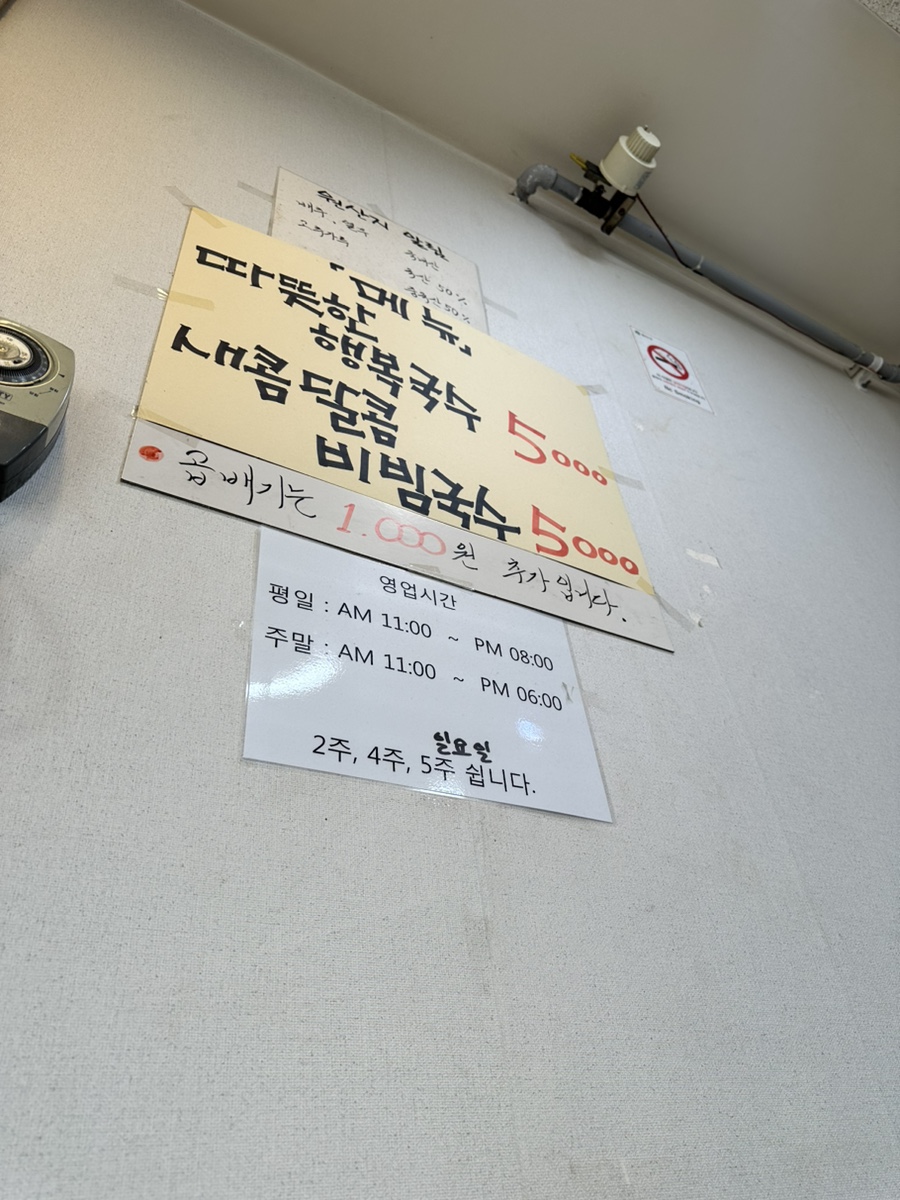 원산지 알림
배추·열무 국내산
고춧가루 국산 50%
중국산 50%
"메뉴"
따뜻한
행복국수 5000
새콤달콤
비빔국수 5000
곱배기는 1.000원 추가입니다.
영업시간
평일 : AM 11:00 ~ PM 08:00
주말 : AM 11:00 ~ PM 06:00
일요일
2주, 4주, 5주 쉽니다.